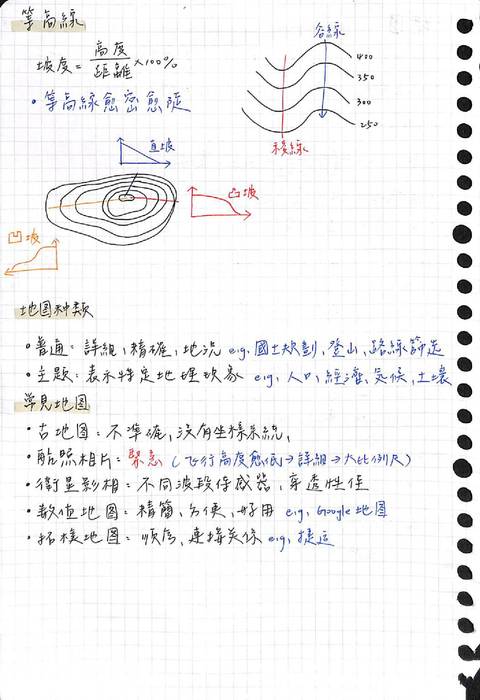 等高線
坡度=高度/距離×100%
•等高線愈密愈陡
谷線
400
350
300
250
稜線
直坡
凸坡
凹坡
地图种类
•普通:詳細,精確,地況 e.g.國土規劃,登山,路線
•主題:表示特定地理現象 e.g.人口,經濟,氣候,土壤
常見地图
•古地图:不準確,沒有坐標系統,
•航照相片:緊急(飞行高度愈低→詳細→大比例尺)
•衛星影相:不同波段感器,穿透性佳
•數值地图:精簡,方便,好用 e.g. Google地图
•拓樸地图:順序,連接关係 e.g.捷运